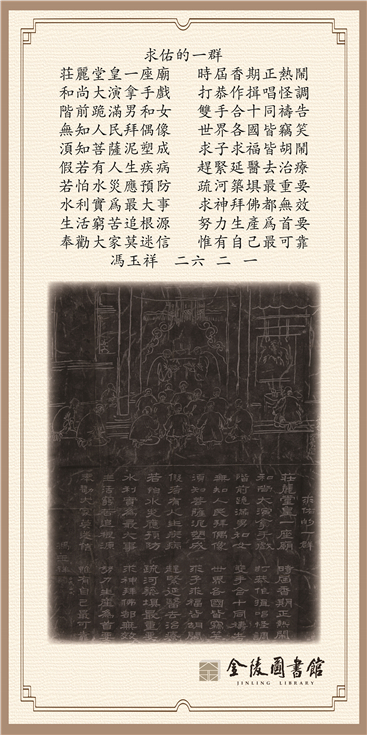 求佑的一群
莊麗堂皇一座廟 時屆香期正熱鬧
和尚大演拿手戲 打恭作揖唱怪調
階前跪滿男和女 雙手合十同禱告
無知人民拜偶像 世界各國皆竊笑
須知菩薩泥塑成 求子求福皆胡鬧
假若有人生疾病 趕緊延醫去治療
若怕水災應預防 疏河築堤最重要
水利實爲最大事 求神拜佛都無效
生活窮苦追根源 努力生產爲首要
奉勸大家莫迷信 惟有自己最可靠
馮玉祥 二六 二 一
金陵圖書館
JINLING LIBRARY